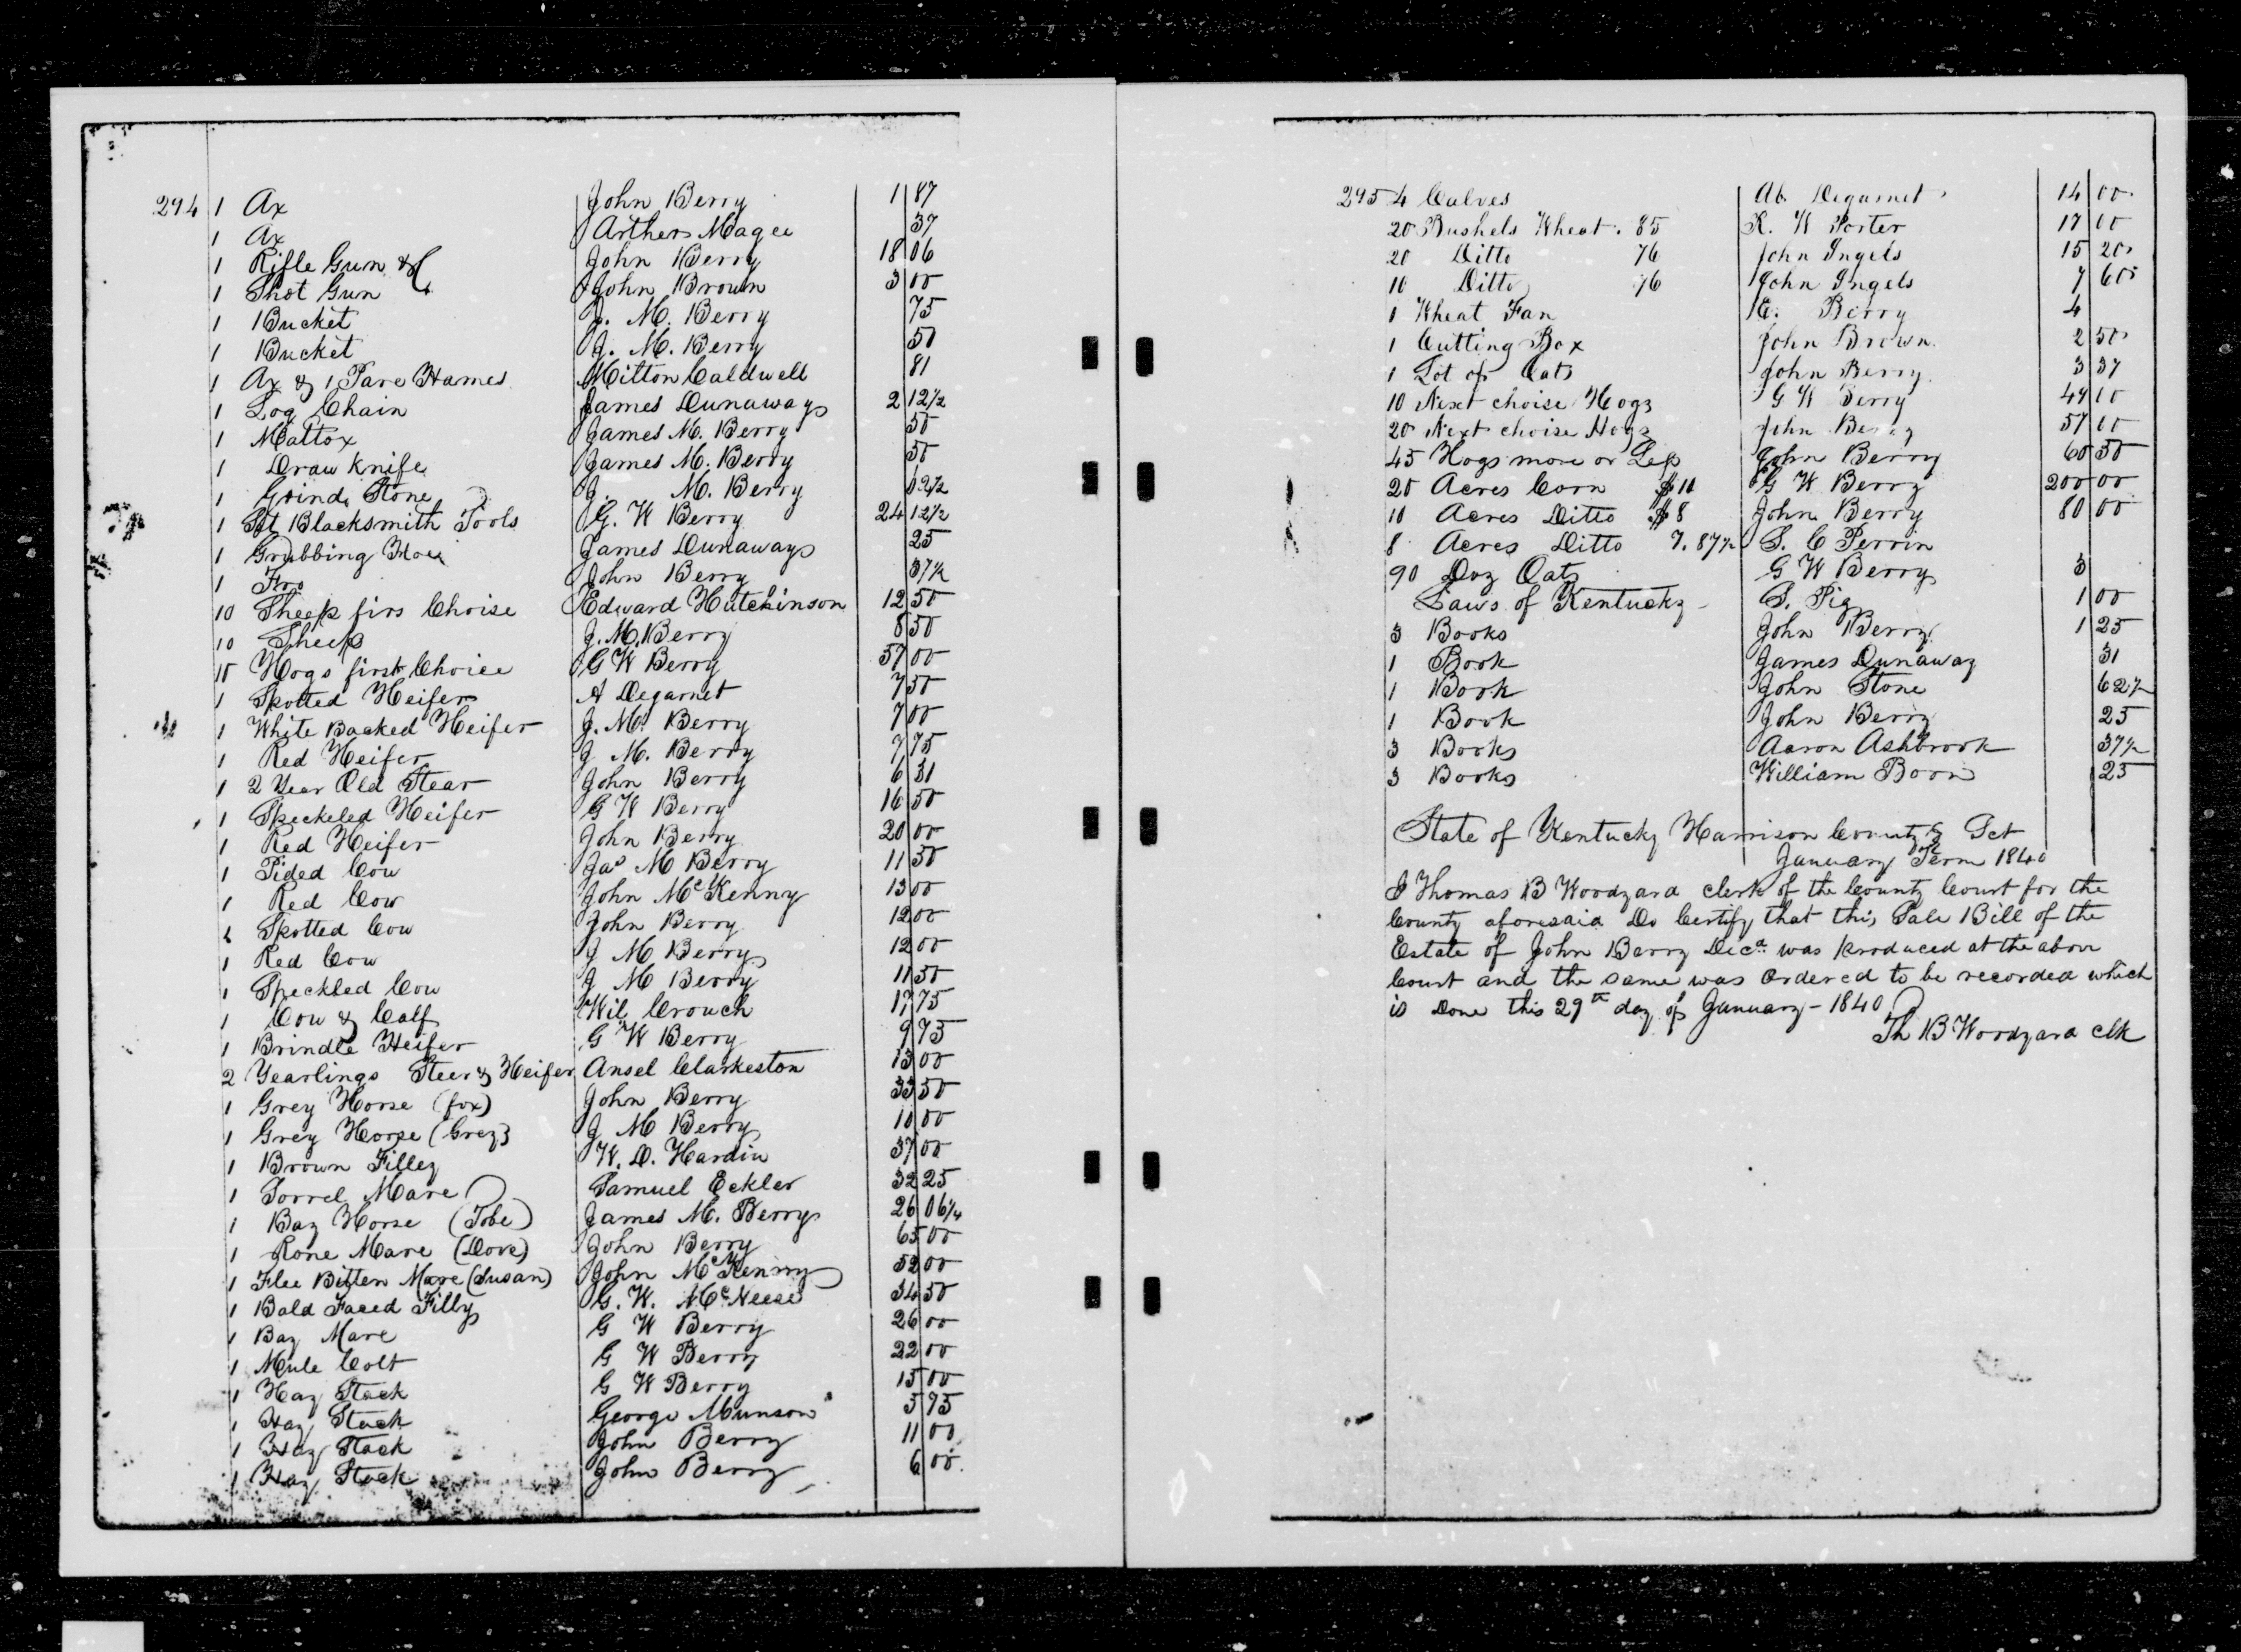 294 1 Ax John Berry 1 87
1 Ax Arther Magee 37
1 Rifle Gun &C John Berry 18 06
1 Shot Gun John Brown 3 00
1 Bucket J. M. Berry 75
1 Bucket J. M. Berry 50
1 Ax & 1 Pare Hames Milton Caldwell 81
1 Log Chain James Dunaway 2 12½
1 Mattox James M. Berry 50
1 Draw Knife James M. Berry 50
1 Grind Stone J. M. Berry 62½
1 Set Blacksmith Tools G. W Berry 24 12½
1 Grubbing Hoe James Dunaway 25
1 Fro John Berry 37½
10 Sheep firs Choise Edward Hutchinson 12 50
10 Sheep J. M. Berry 8 50
15 Hogs first Choice G W Berry 57 00
1 Spotted Heifer A Degarnet 7 50
1 White Backed Heifer J. M. Berry 7 00
1 Red Heifer J M. Berry 7 75
1 2 Year Old Stear John Berry 6 31
1 Speckeled Heifer G W Berry 16 50
1 Red Heifer John Berry 20 00
1 Pided Cow Jas M Berry 11 50
1 Red Cow John McKenny 13 00
1 Spotted Cow John Berry 12 00
1 Red Cow J M Berry 12 00
1 Speckled Cow J M Berry 11 50
1 Cow & Calf Wil Crouch 17 75
1 Brindle Heifer G W Berry 9 75
2 Yearlings Steer & Heifer Ansel Clarkeston 13 00
1 Grey Horse (fox) John Berry 33 50
1 Grey Horse (Grey) J M Berry 10 00
1 Brown Filley W. D. Hardin 37 00
1 Sorrel Mare Samuel Eckler 32 25
1 Bay Horse (Tobe) James M. Berry 26 06¼
1 Rone Mare (Dove) John Berry 65 00
1 Flee Bitten Mare (Susan) John McKenny 52 00
1 Bald Faced Filly G. W. McNeese 34 50
1 Bay Mare G W Berry 26 00
1 Mule Colt G W Berry 22 00
1 Hay Stack G W Berry 15 00
1 Hay Stack George Munson 5 95
1 Hay Stack John Berry 11 00
1 Hay Stack John Berry 6 00
295 4 Calves Ab. Degarnet 14 00
20 Bushels Wheat. 85 R. W Porter 17 00
20 Ditto 76 John Ingels 15 20
10 Ditto 76 John Ingels 7 60
1 Wheat Fan E. Berry 4
1 Cutting Box John Brown 2 50
1 Lot of Oats John Berry 3 37
10 Next choise Hogs G W Berry 49 00
20 Next choise Hogs John Berry 57 00
45 Hogs more or Less John Berry 60 50
20 Acres Corn $10 G W Berry 200 00
10 Acres Ditto $8 John Berry 80 00
8 Acres Ditto 7.87½ S. C Perrin
90 Doz Oats G W Berry 3
Laws of Kentucky S. Pig 1 00
3 Books John Berry 1 25
1 Book James Dunaway 31
1 Book John Stone 62½
1 Book John Berry 25
3 Books Aaron Ashbrook 37½
3 Books William Boon 25
State of Kentucky Harrison County Sct
January Term 1840
I Thomas B Woodyard clerk of the County Court for the
County aforesaid Do Certify that this Sale Bill of the
Estate of John Barry Decd was produced at the above
Court and the same was Ordered to be recorded which
is Done this 29th day of January - 1840
Th B Woodyard clk